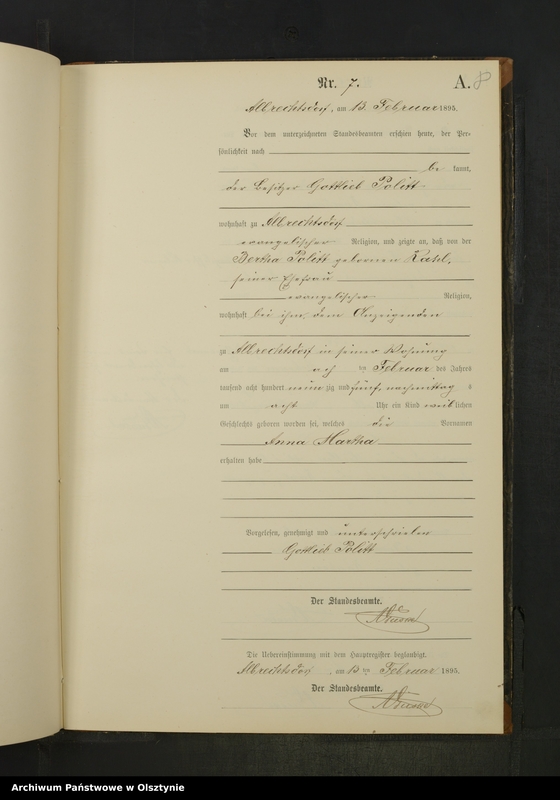 Nr. 7. A. 8
Albrechtsdorf, am 13. Februar 1895.
Vor dem unterzeichneten Standesbeamten erschien heute, der Per-
sönlichkeit nach
be kannt,
der Besitzer Gottlieb Politt
wohnhaft zu Albrechtsdorf
evangelischer Religion, und zeigte an, daß von der
Bertha Politt gebornen
seiner Ehefrau
evangelischer Religion,
wohnhaft bei ihm, dem Anzeigenden
zu Albrechtsdorf in seiner Wohnung
am ten Februar des Jahres
tausend acht hundert neun zig und fünf, nachmittag s
um acht Uhr ein Kind weib lichen
Geschlechts geboren worden sei, welches die Vornamen
Anna Martha
erhalten habe
Vorgelesen, genehmigt und unterschrieben
Gottlieb Politt
Der Standesbeamte.
Die Uebereinstimmung mit dem Hauptregister beglaubigt.
Albrechtsdorf, am 13 ten Februar 1895.
Der Standesbeamte.
Archiwum Państwowe w Olsztynie